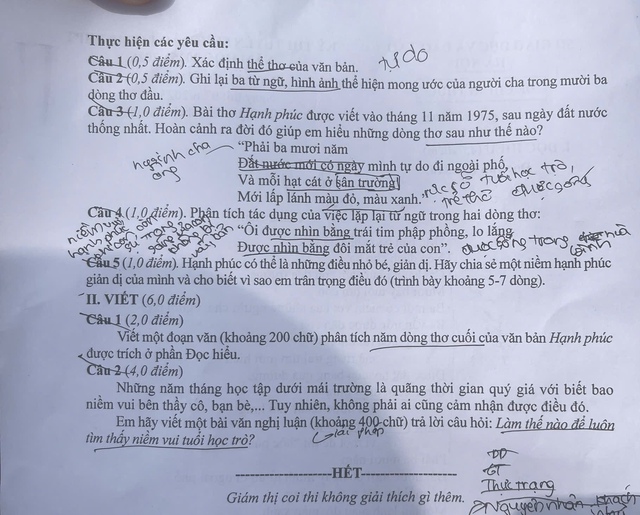 Thực hiện các yêu cầu:
Câu 1 (0,5 điểm). Xác định thể thơ của văn bản. tự do
Câu 2 (0,5 điểm). Ghi lại ba từ ngữ, hình ảnh thể hiện mong ước của người cha trong mười ba
dòng thơ đầu.
Câu 3 (1,0 điểm). Bài thơ Hạnh phúc được viết vào tháng 11 năm 1975, sau ngày đất nước
thống nhất. Hoàn cảnh ra đời đó giúp em hiểu những dòng thơ sau như thế nào?
“Phải ba mươi năm
Đất nước mới có ngày mình tự do đi ngoài phố,
Và mỗi hạt cát ở sân trường
Mới lấp lánh màu đỏ, màu xanh.
tuổi học trò,
trẻ thơ
được sống
Câu 4 (1,0 điểm). Phân tích tác dụng của việc lặp lại từ ngữ trong hai dòng thơ:
“Ôi được nhìn bằng trái tim phập phồng, lo lắng
Được nhìn bằng đôi mắt trẻ của con”.
được sống trong
bình
niềm vui
hạnh phúc
Câu 5 (1,0 điểm). Hạnh phúc có thể là những điều nhỏ bé, giản dị. Hãy chia sẻ một niềm hạnh phúc
giản dị của mình và cho biết vì sao em trân trọng điều đó (trình bày khoảng 5-7 dòng).
II. VIẾT (6,0 điểm)
Câu 1 (2,0 điểm)
Viết một đoạn văn (khoảng 200 chữ) phân tích năm dòng thơ cuối của văn bản Hạnh phúc
được trích ở phần Đọc hiểu.
Câu 2 (4,0 điểm)
Những năm tháng học tập dưới mái trường là quãng thời gian quý giá với biết bao
niềm vui bên thầy cô, bạn bè,... Tuy nhiên, không phải ai cũng cảm nhận được điều đó.
Em hãy viết một bài văn nghị luận (khoảng 400 chữ) trả lời câu hỏi: Làm thế nào để luôn
tìm thấy niềm vui tuổi học trò?
Giải pháp
HẾT
Giám thị coi thi không giải thích gì thêm.
DD
GT
Thực trạng
Nguyên nhân khách